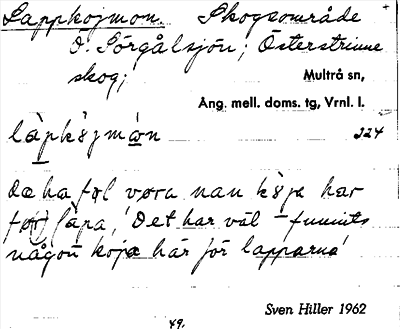 Lappkojmon. Skogsområde
Ö. Sörgålsjön; Österstrinne
skog;
Multrå sn,
Ång. mell. doms. tg, Vrnl. l.
làpkòjmán 224
dæ ha føl vøra nan kòja har
før làpa, 'Det har väl funnits
någon koja här för lapparna'
Sven Hiller 1962
49.